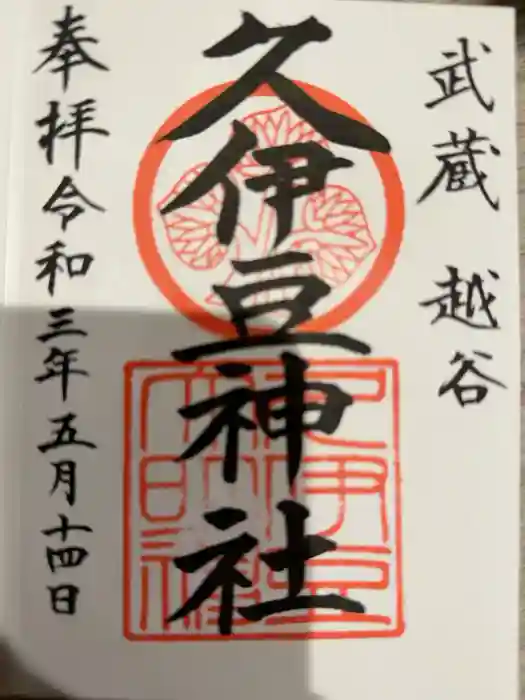 武蔵 越谷
久伊豆神社
奉拝令和三年五月十四日